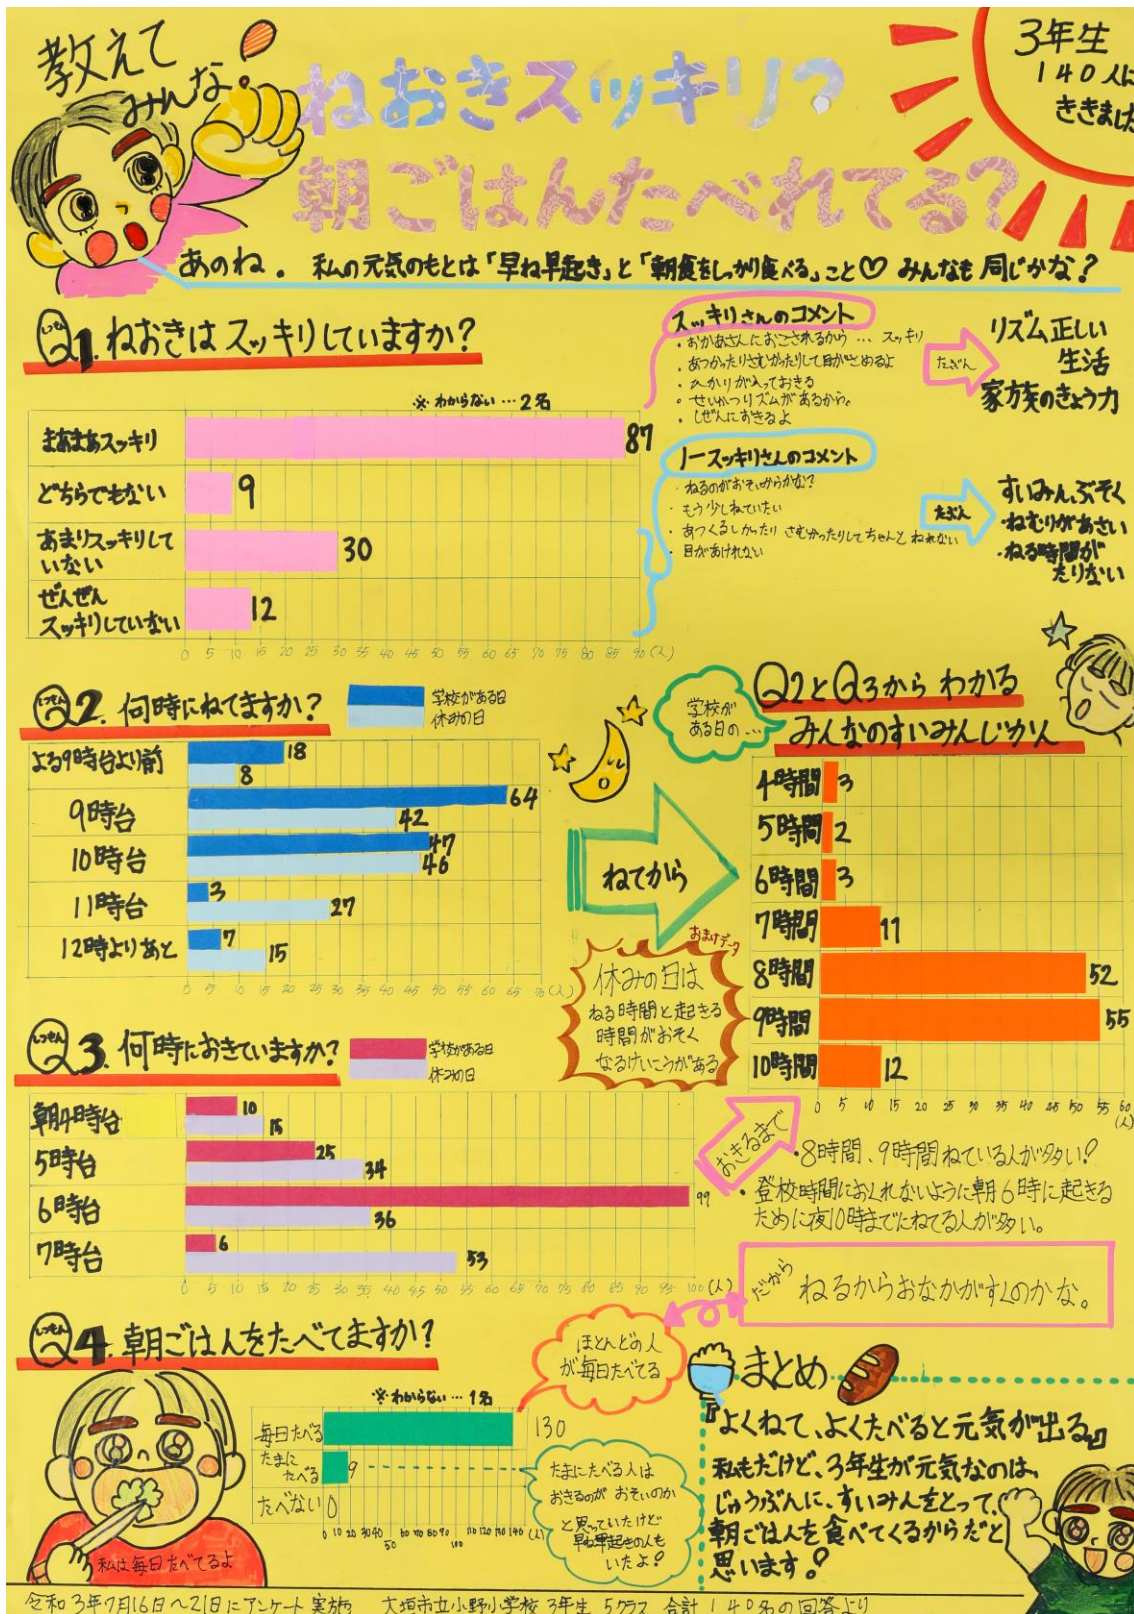 教えて
みんな
ねおきスッキリ?
朝ごはんたべれてる?
3年生
140人に
ききました
あのね。 私の元気のもとは「早ね早起き」と「朝食をしっかり食べる」こと♡ みんなも同じかな?
しつもん
Q1. ねおきはスッキリしていますか?
※わからない…2名
まあまあスッキリ 87
どちらでもない 9
あまりスッキリして
いない 30
ぜんぜん
スッキリしていない 12
0 5 10 15 20 25 30 35 40 45 50 55 60 65 70 75 80 85 90 (人)
スッキリさんのコメント
・おかあさんにおこされるから … スッキリ
・あつかったりさむかったりして目がさめるよ
・ひかりが入っておきる
・せいかつリズムがあるから。
・しぜんにおきるよ
たぶん
リズム正しい
生活
家族のきょう力
ノースッキリさんのコメント
・ねるのがおそいからかな?
・もう少しねていたい
・あつくるしかったり さむかったりしてちゃんと ねれない
・目があけれない
たぶん
すいみんぶそく
・ねむりがあさい
・ねる時間が
たりない
しつもん
Q2. 何時にねてますか?
学校がある日
休みの日
よる9時台より前 18 8
9時台 64 42
10時台 47 46
11時台 3 27
12時よりあと 7 15
0 5 10 15 20 25 30 35 40 45 50 55 60 65 70 (人)
ねてから
学校が
ある日の…
Q2とQ3から わかる
みんなのすいみんじかん
4時間 3
5時間 2
6時間 3
7時間 11
8時間 52
9時間 55
10時間 12
0 5 10 15 20 25 30 35 40 45 50 55 60
(人)
おまけデータ
休みの日は
ねる時間と起きる
時間がおそく
なるけいこうがある
しつもん
Q3. 何時におきていますか?
学校がある日
休みの日
朝4時台 10 15
5時台 25 34
6時台 99 36
7時台 6 53
0 5 10 15 20 25 30 35 40 45 50 55 60 65 70 75 80 85 90 95 100 (人)
おきるまで
・8時間、9時間ねている人が多い!
・登校時間におくれないように朝6時に起きる
ために夜10時までにねてる人が多い。
だから
ねるからおなかがすくのかな。
しつもん
Q4. 朝ごはんをたべてますか?
※わからない…1名
毎日たべる 130
たまに
たべる 9
たべない 0
0 10 20 30 40 50 60 70 80 90 100 110 120 130 140 (人)
私は毎日たべてるよ
ほとんどの人
が毎日たべてる
たまにたべる人は
おきるのが おそいのか
と思っていたけど
早ね早起きの人も
いたよ!
まとめ
『よくねて、よくたべると元気が出る。』
私もだけど、3年生が元気なのは、
じゅうぶんに、すいみんをとって、
朝ごはんを食べてくるからだと
思います!
令和3年7月16日~21日にアンケート実施 大垣市立小野小学校 3年生 5クラス 合計140名の回答より